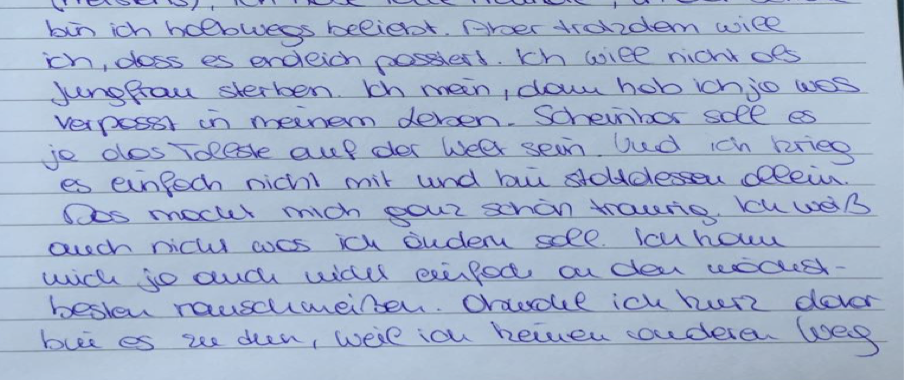 bin ich halbwegs beliebt. Aber trotzdem will
ich, dass es endlich passiert. Ich will nicht als
Jungfrau sterben. Ich mein, dann hab ich ja was
verpasst in meinem Leben. Scheinbar soll es
ja das Tollste auf der Welt sein. Und ich krieg
es einfach nicht mit und bin stattdessen allein.
Das macht mich ganz schön traurig. Ich weiß
auch nicht was ich ändern soll. Ich kann
mich ja auch nicht einfach an den nächst-
besten rauschmeißen. Obwohl ich kurz davor
bin es zu tun, weil ich keinen anderen Weg